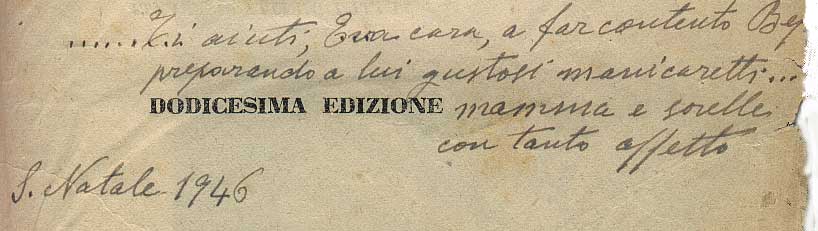 ........Ti aiuti, Eva cara, a far contento Bep
preparando a lui gustosi manicaretti...
DODICESIMA EDIZIONE mamma e sorelle
con tanto affetto
S. Natale 1946